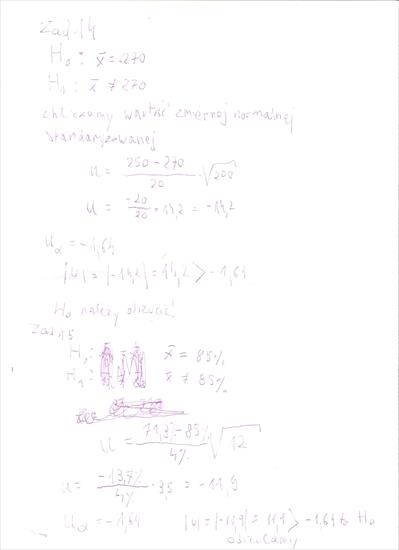 Zad 14
H₀ : x̄ = 270
H₁ : x̄ ≠ 270
obliczamy wartść zmiennej normalnej
standaryzowanej
u = (250 - 270)/20 · √200
u = -20/20 · 14,2 = -14,2
u_α = -1,64
|u| = |-14,2| = 14,2 > -1,64
H₀ należy odrzucić
Zad 15
H₀ : x̄ = 85%
H₁ : x̄ ≠ 85%
u = (71,3% - 85%)/4% √12
u = -13,7%/4% · 3,5 = -11,9
u_α = -1,64 |u| = |-11,9| = 11,9 > -1,64 to H₀
odrzucamy